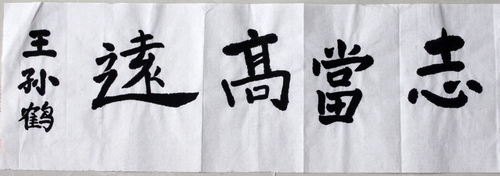 志當高遠
王孙鹤